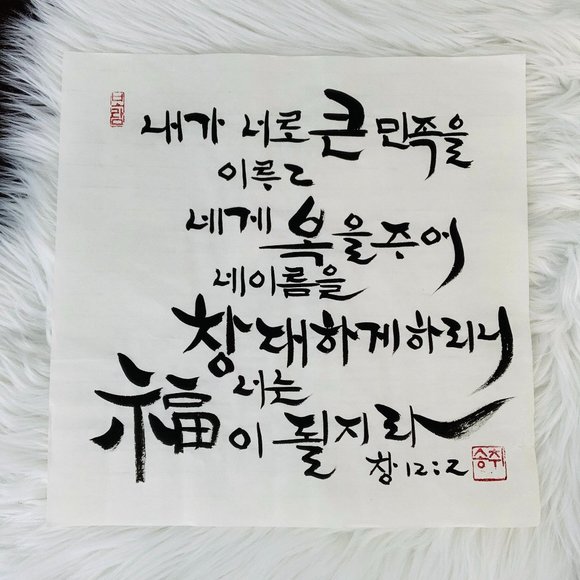 보람
내가 너로 큰 민족을
이루고
네게 복을 주어
네 이름을
창대하게 하리니
너는
福이 될지라
창 12:2